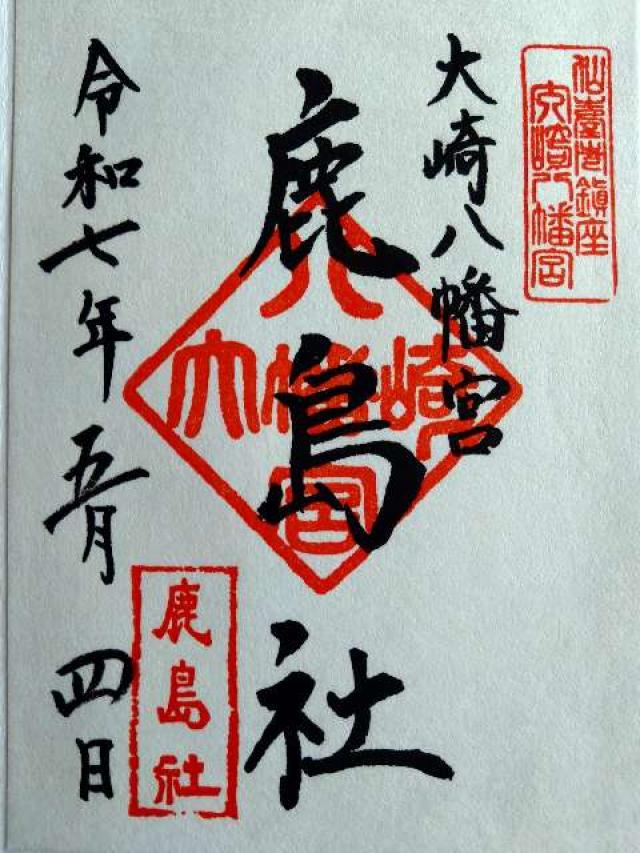 仙臺總鎮座
大崎八幡宮
大崎八幡宮
鹿島社
八
大幡崎
宮
令和七年五月四日
鹿島社